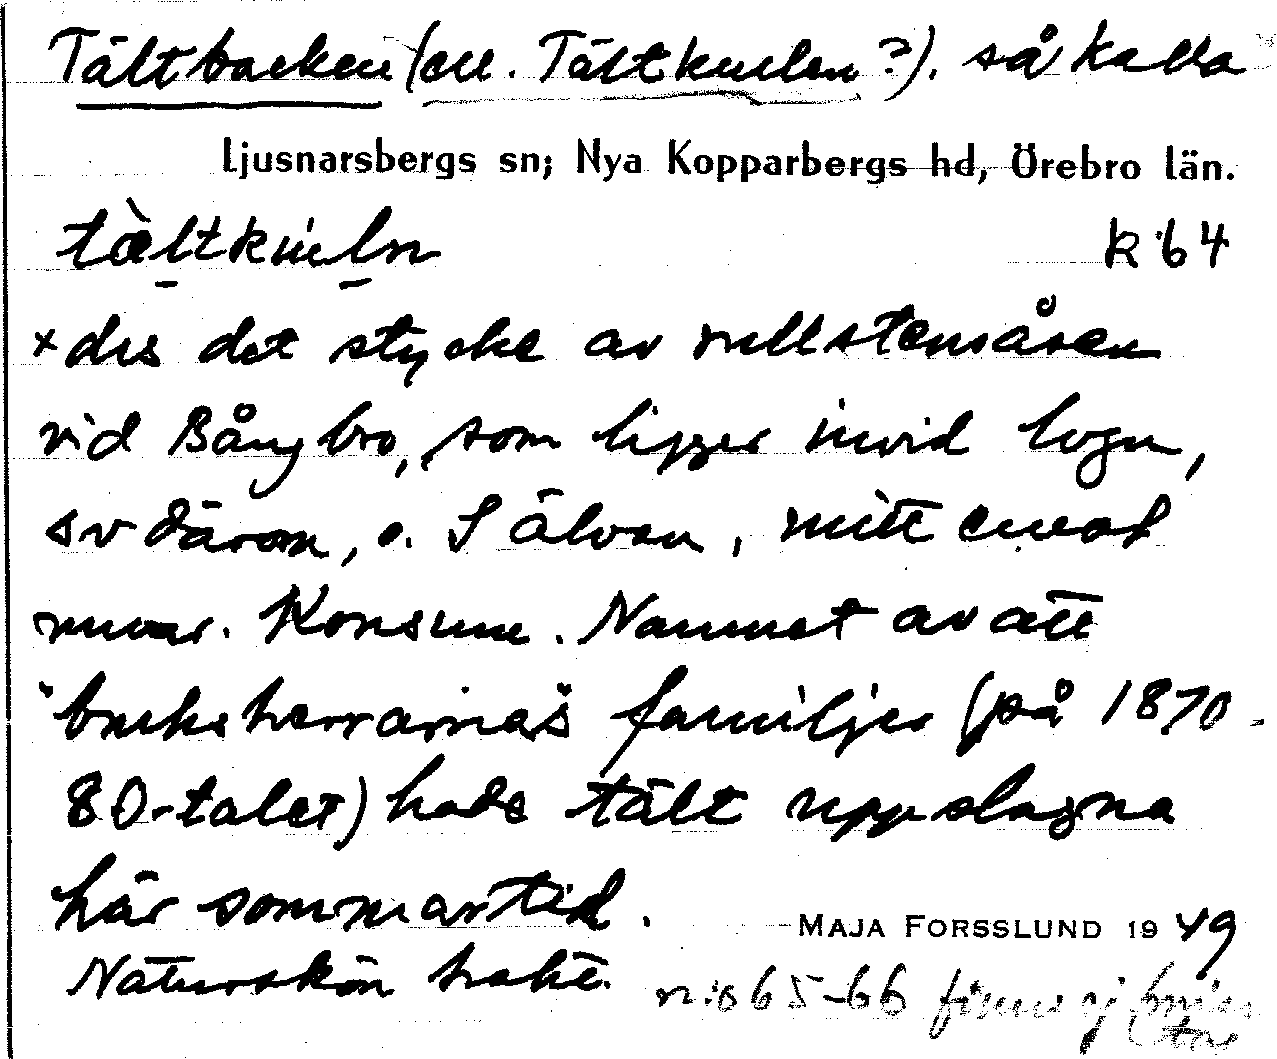 Tältbacken (ell. Tältkullen?). så kalla
Ljusnarsbergs sn; Nya Kopparbergs hd, Örebro län.
tæ̀ltkuln K 64
× dvs det stycke av rullstensåsen
vid Bångbro, som ligger invid bogn,
sv därom, o. S älven, mitt emot
nuvar. Konsum. Namnet av att
"bruksherrarnas" familjer (på 1870-
80-talet) hade tält uppslagna
här sommartid.
MAJA FORSSLUND 1949
Naturskön trakt.
n:o 65-66 finns ej